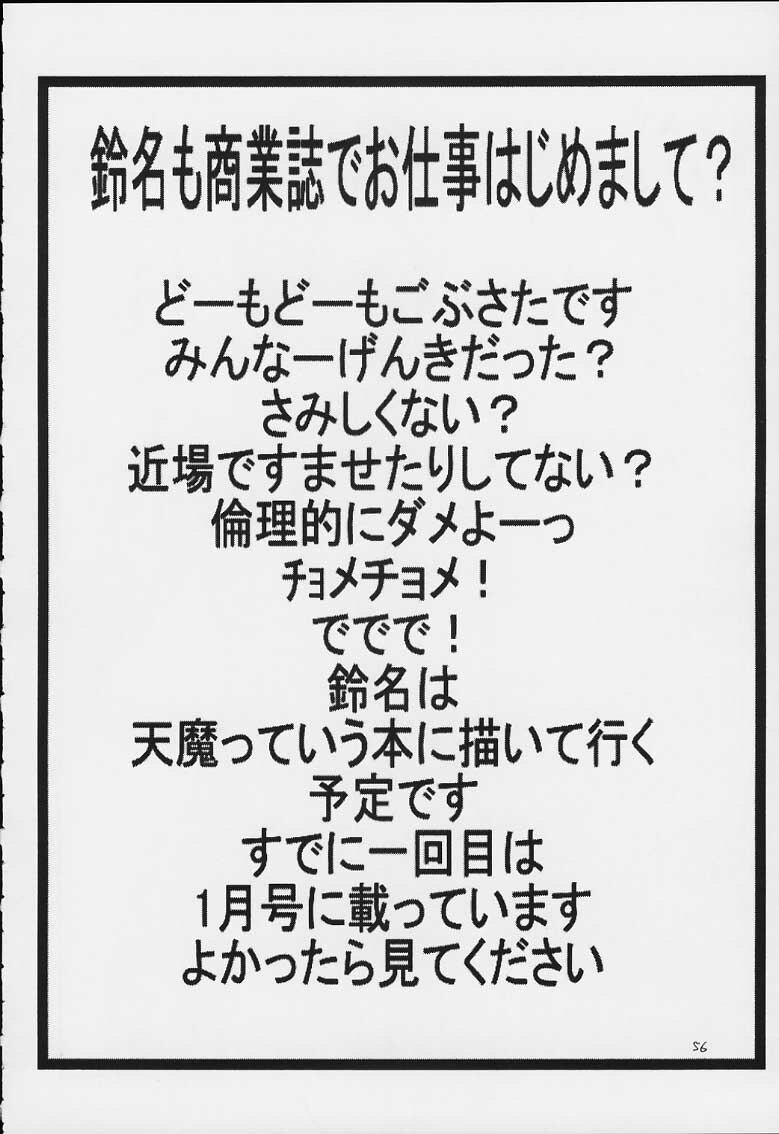 鈴名も商業誌でお仕事はじめまして？
どーもどーもごぶさたです
みんなーげんきだった？
さみしくない？
近場ですませたりしてない？
倫理的にダメよーっ
ﾁｮﾒチョメ！
ででで！
鈴名は
天魔っていう本に描いて行く
予定です
すでに一回目は
1月号に載っています
よかったら見てください
56